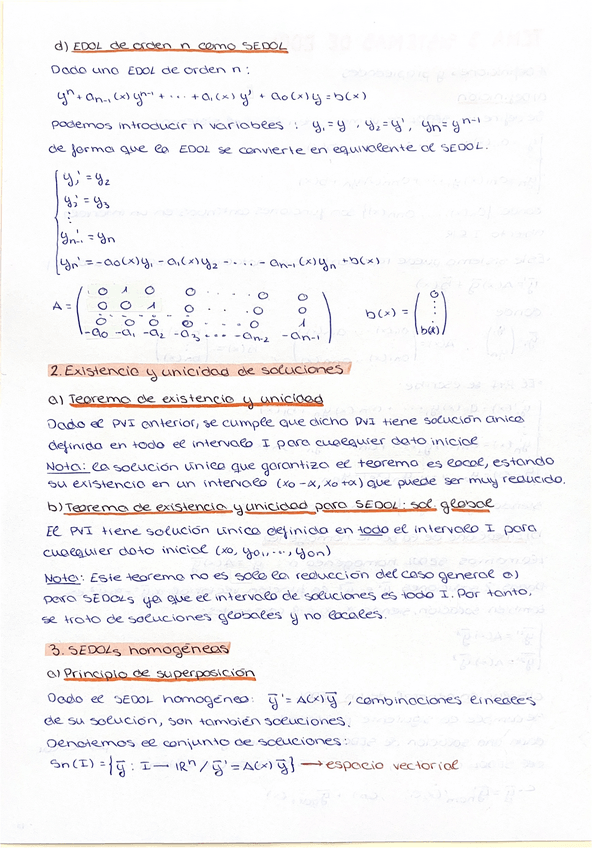 d) EDOL de orden n como SEDOL
Dado una EDOL de orden n:
yⁿ + aₙ₋₁(x)yⁿ⁻¹ + ··· + a₁(x)y' + a₀(x)y = b(x)
Podemos introducir n variables : y₁=y , y₂=y', yₙ=yⁿ⁻¹
de forma que la EDOL se convierte en equivalente al SEDOL.
y₁' = y₂
y₂' = y₃
⋮
yₙ₋₁' = yₙ
yₙ' = -a₀(x)y₁ - a₁(x)y₂ - ... - aₙ₋₁(x)yₙ + b(x)
A = ( 0 1 0 0 ... 0 0
0 0 1 0 ... 0 0
0 0 0 0 ... 0 1
-a₀ -a₁ -a₂ -a₃ ... -aₙ₋₂ -aₙ₋₁ )
b(x) = ( 0 ⋮ b(x) )
2. Existencia y unicidad de soluciones
a) Teorema de existencia y unicidad
Dado el PVI anterior, se cumple que dicho PVI tiene solución única
definida en todo el intervalo I para cualquier dato inicial
Nota: la solución única que garantiza el teorema es local, estando
su existencia en un intervalo (x₀-α, x₀+α) que puede ser muy reducido.
b) Teorema de existencia y unicidad para SEDOL: sol. global
El PVI tiene solución única definida en todo el intervalo I para
cualquier dato inicial (x₀, y₀₁, ..., y₀ₙ)
Nota: Este teorema no es solo la reducción del caso general a)
para SEDOLs ya que el intervalo de soluciones es todo I. Por tanto,
se trata de soluciones globales y no locales.
3. SEDOLs homogéneas
a) Principio de superposición
Dado el SEDOL homogéneo: ȳ' = A(x)ȳ , combinaciones lineales
de su solución, son también soluciones.
Denotemos el conjunto de soluciones:
Sn(I) = {ȳ : I → ℝⁿ / ȳ' = A(x)ȳ} → espacio vectorial